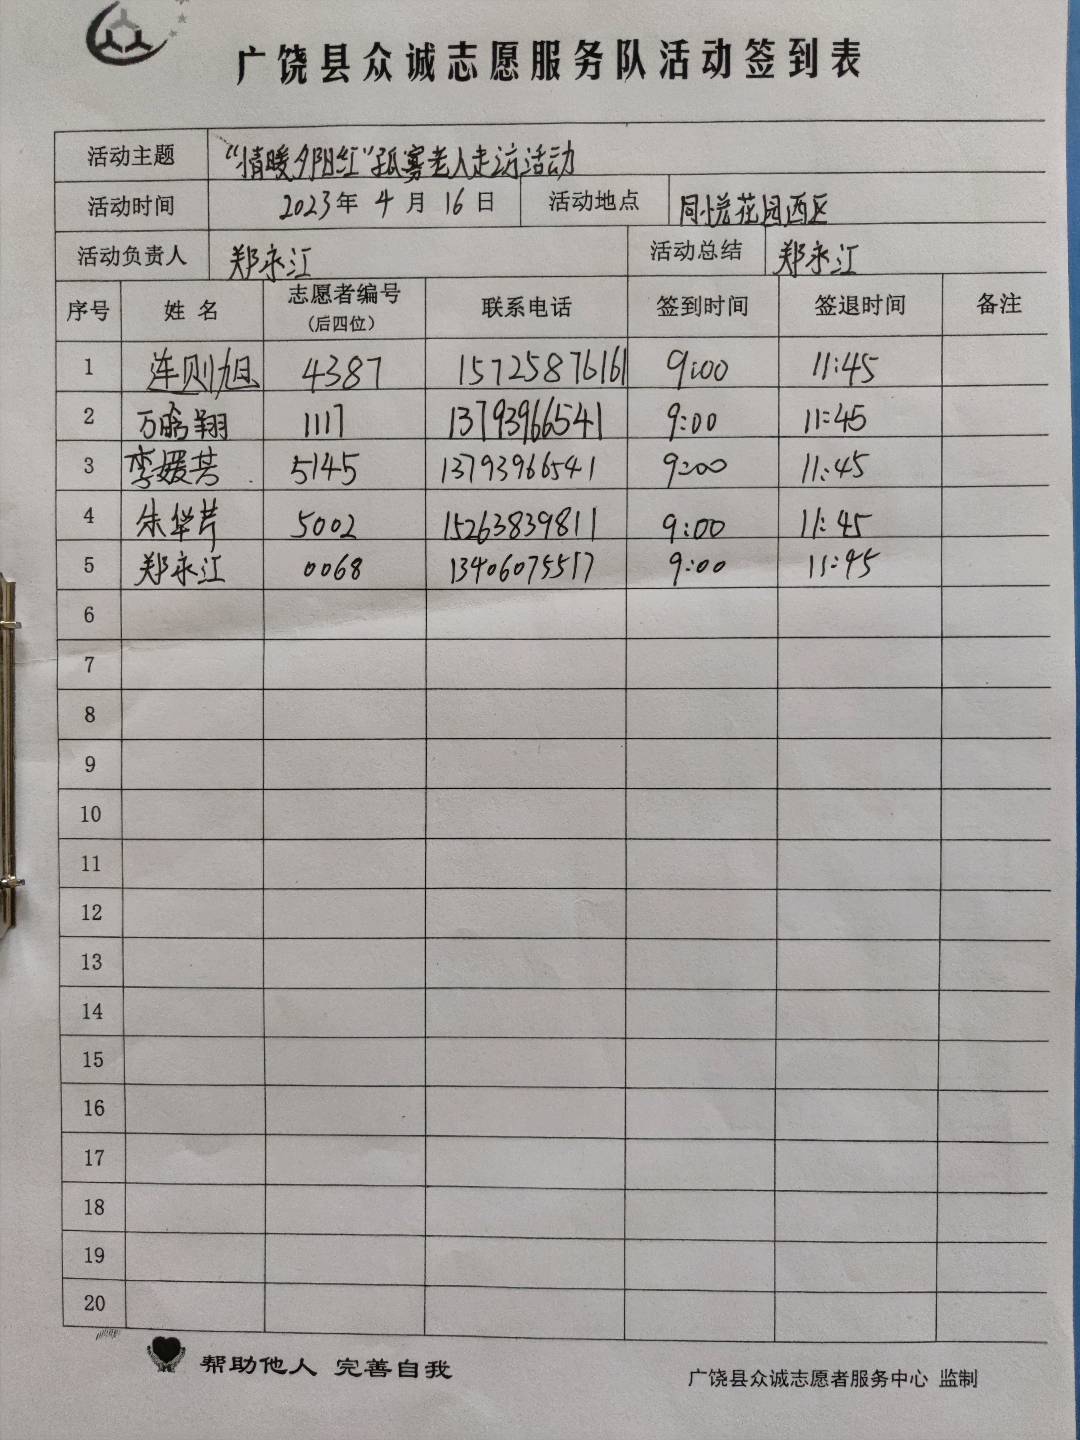 广饶县众诚志愿服务队活动签到表
活动主题 “情暖夕阳红”孤寡老人走访活动
活动时间 2023年 4 月 16 日 活动地点 同悦花园西区
活动负责人 郑永江 活动总结 郑永江
序号 姓 名 志愿者编号 (后四位) 联系电话 签到时间 签退时间 备注
1 连则旭 4387 15725876161 9:00 11:45
2 万鹏翔 1117 13793966541 9:00 11:45
3 李媛 5145 13793966541 9:00 11:45
4 朱华芹 5002 15263839811 9:00 11:45
5 郑永江 0068 13406075517 9:00 11:45
6
7
8
9
10
11
12
13
14
15
16
17
18
19
20
帮助他人 完善自我
广饶县众诚志愿者服务中心 监制